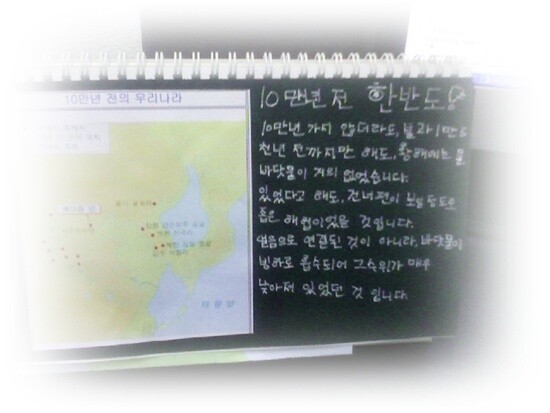 10만년 전의 우리나라
태평양
10만년 전 한반도
10만년 가지 않더라도, 불과 1만 5
천년 전까지만 해도, 황해에는
바닷물이 거의 없었습니다.
있었다고 해도, 건너편이 보일 정도로
좁은 해협이었을 것입니다.
얼음으로 연결된 것이 아니라, 바닷물이
빙하로 흡수되어 그 수위가 매우
낮아져 있었던 것 입니다.